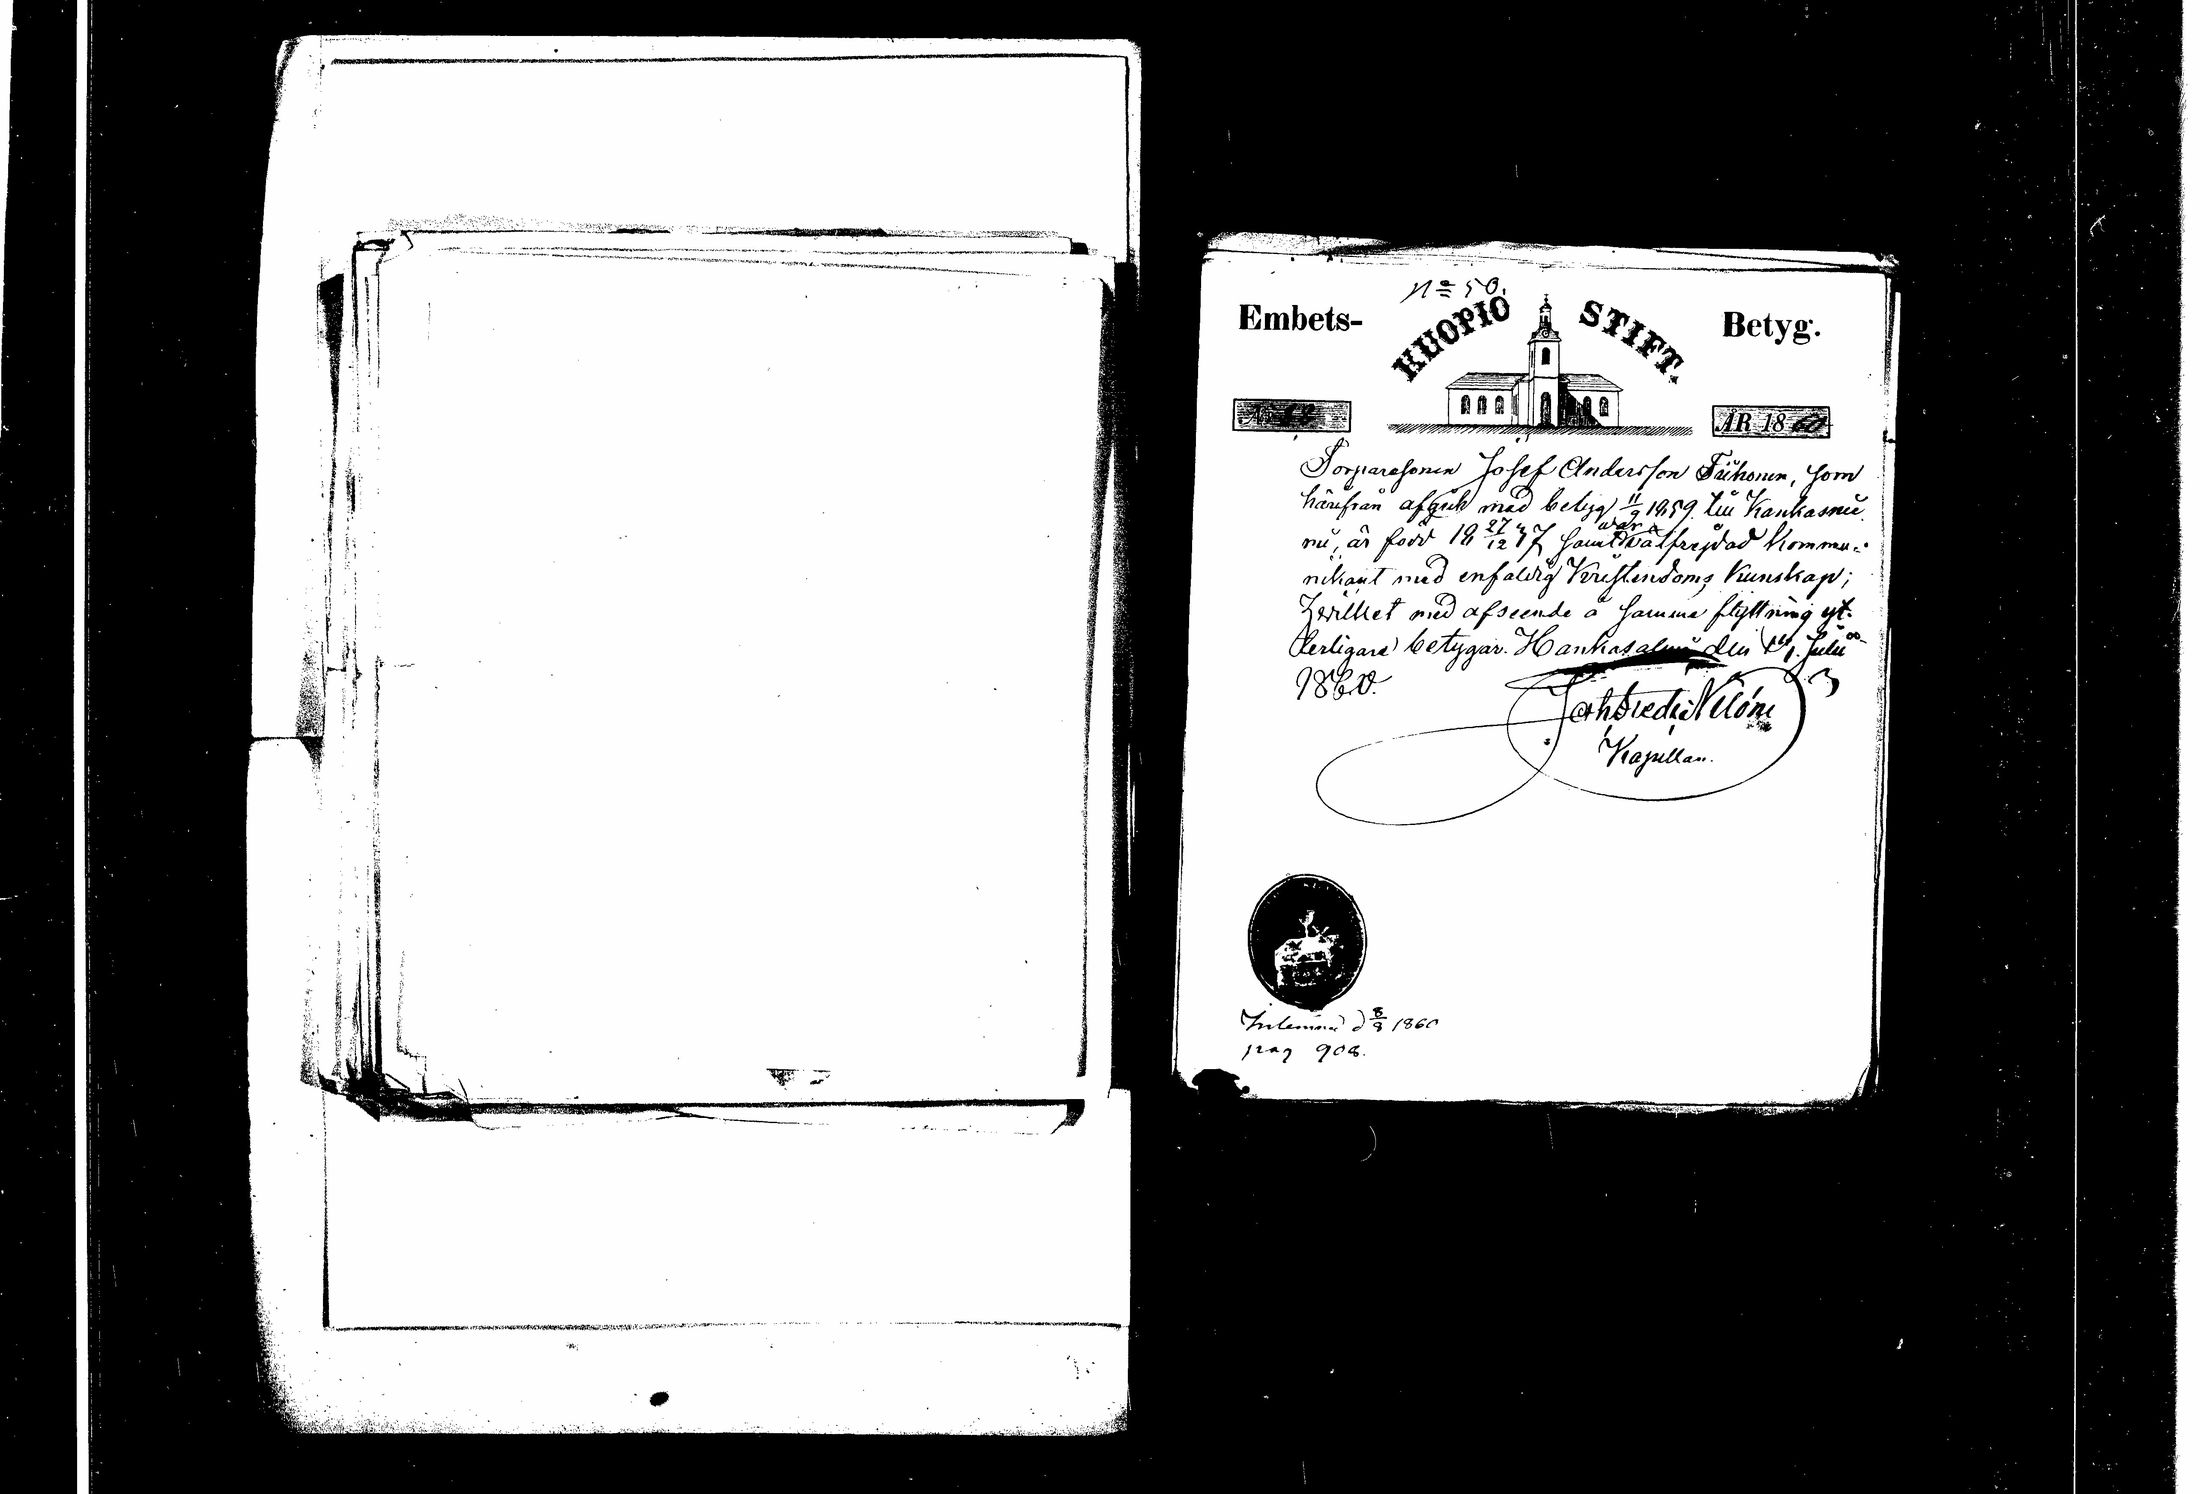 N:o 50.
Embets- KUOPIO STIFT. Betyg.
ÅR 1860
Torparesonen Josef Andersson Tiihonen, som
härifrån afgick med betyg 11/9 1859 till Kankasnie
mi, är född 18 27/12 37 samt war wälfrejdad Kommu-
nikant med enfaldig Kristendoms Kunskap;
hwilket med afseende å samma flyttning yt-
terligare betygar. Hankasalmi den Julii
1860.
Joh Fredr Nelóni
Kapellan.
Inlemnad d 8/8 1860
pag 908.